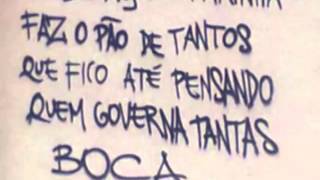 FAZ O PÃO DE TANTOS
QUE FICO ATÉ PENSANDO
QUEM GOVERNA TANTAS
BOCA